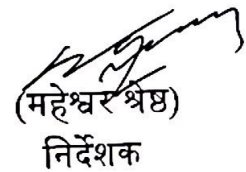 (महेश्वर श्रेष्ठ)
निर्देशक